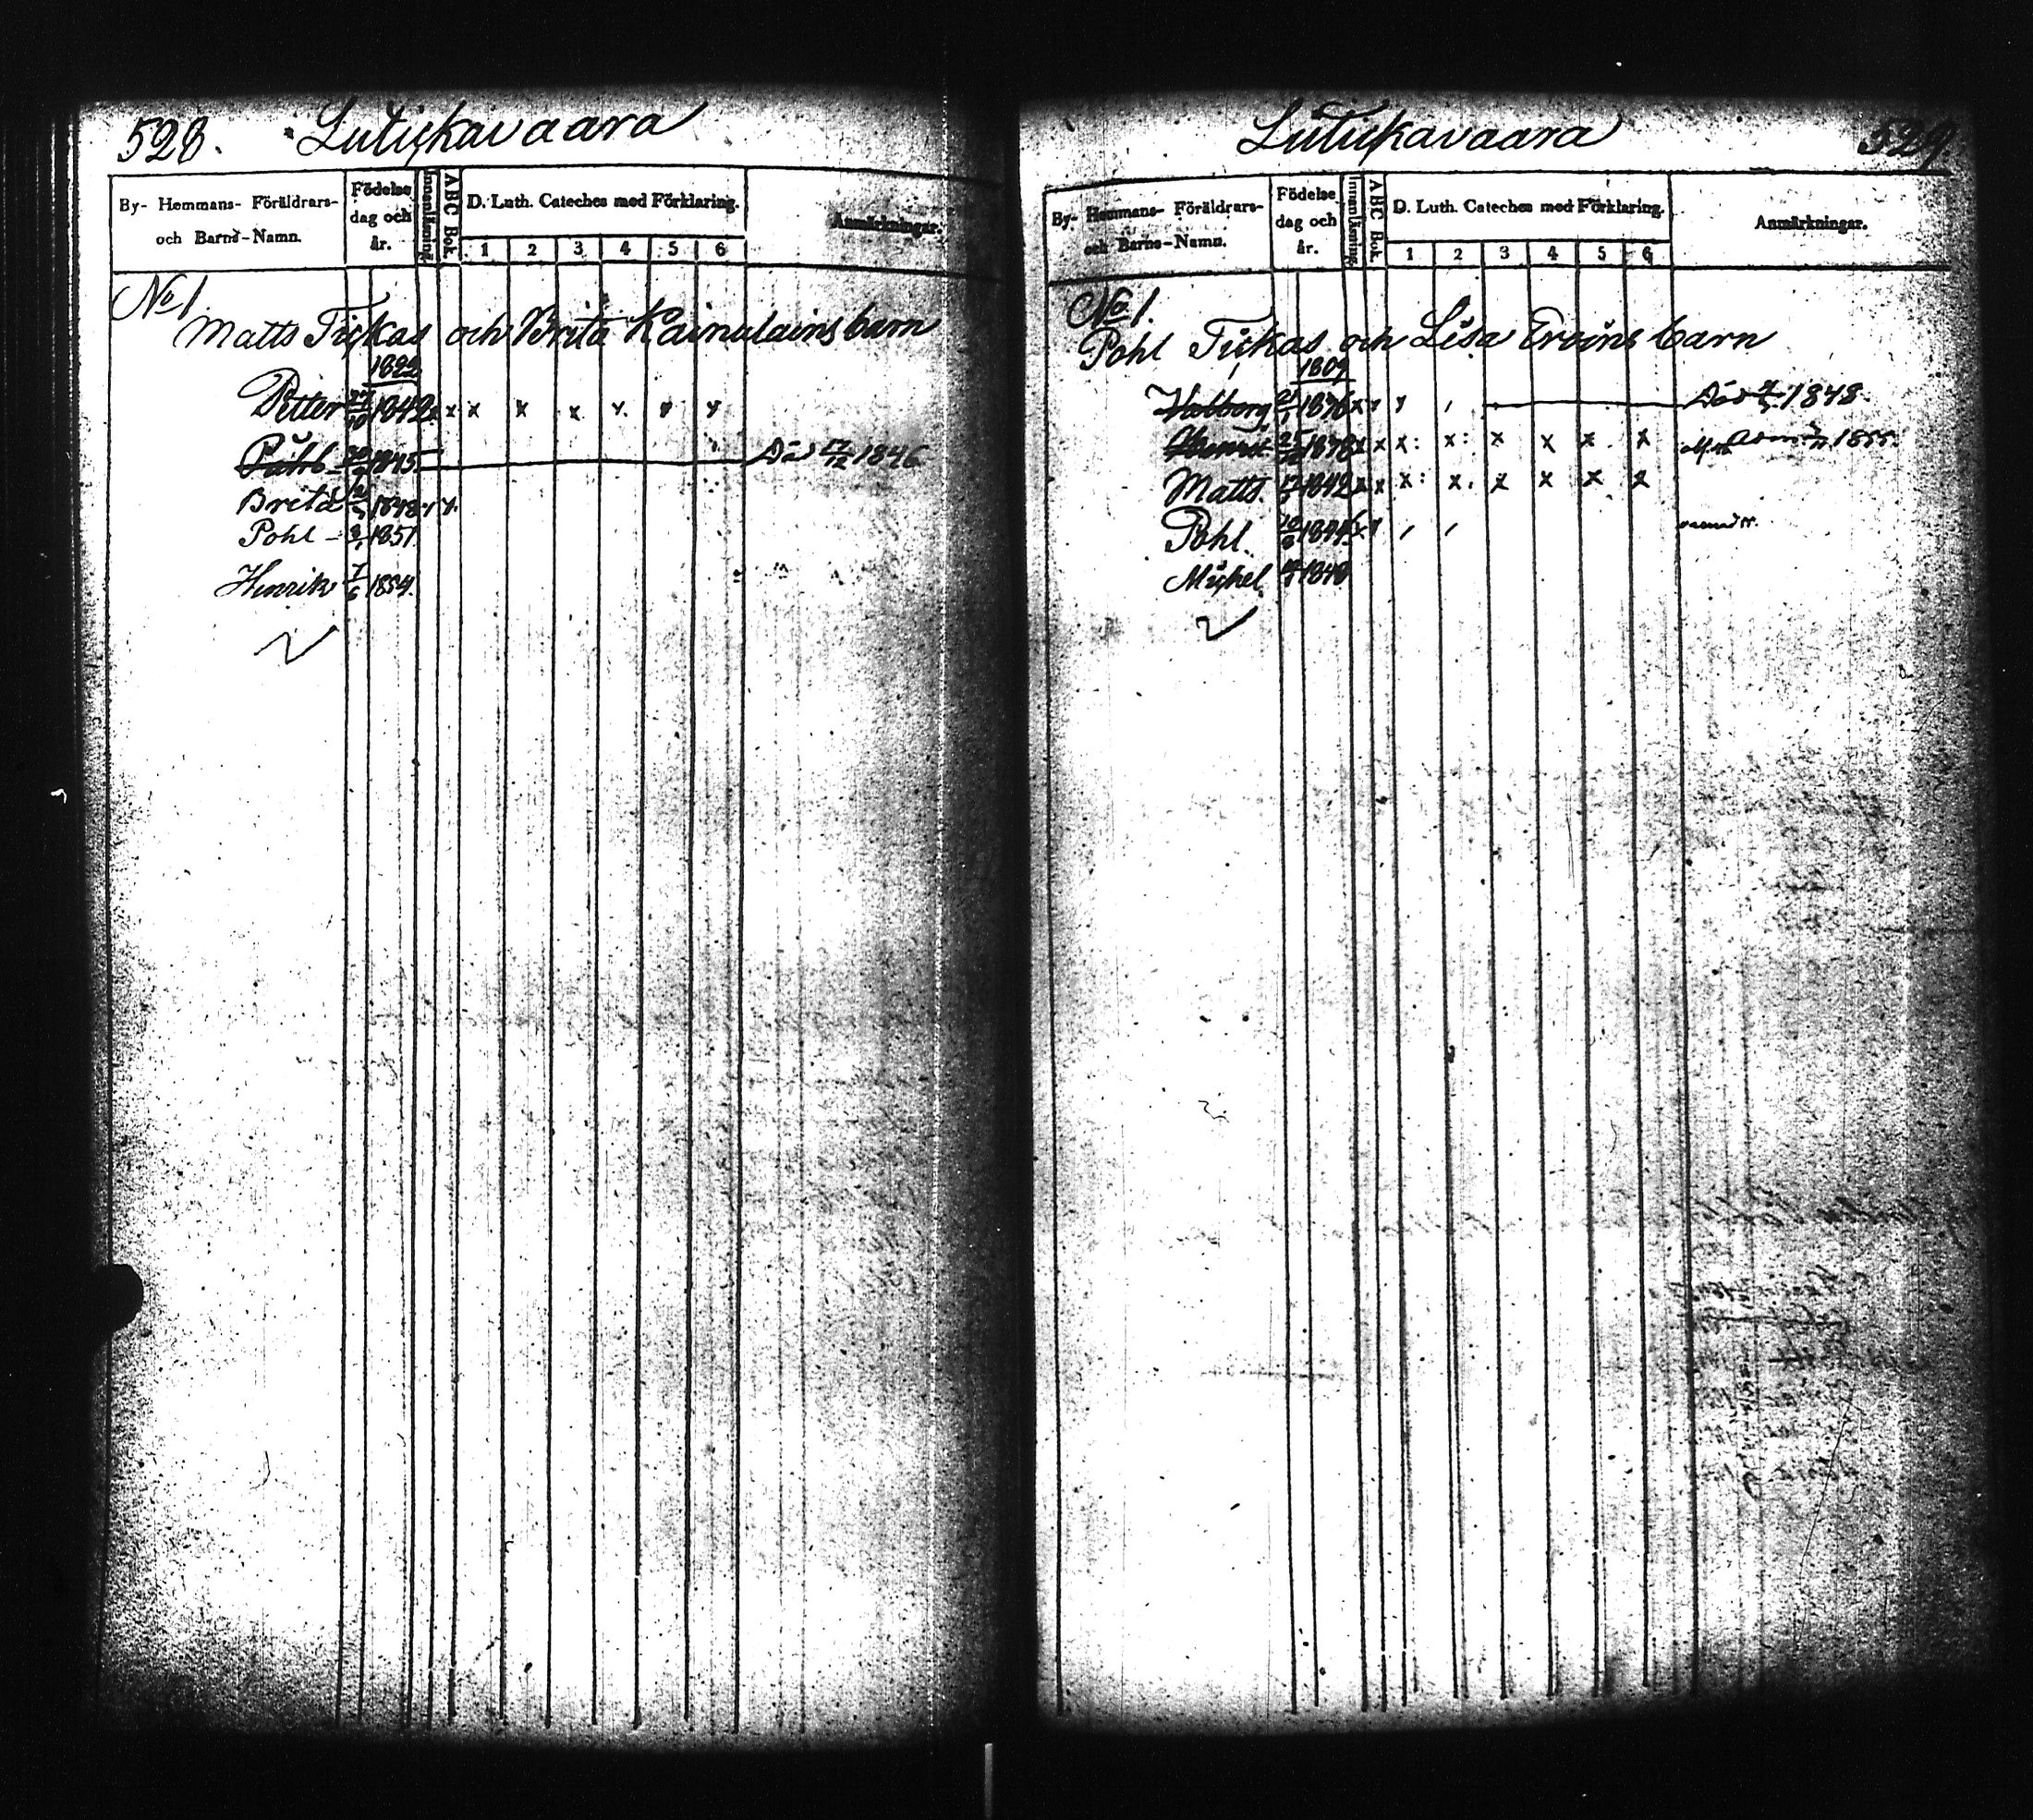 528. Lutickavaara
By- Hemmans- Föräldrars- och Barns-Namn.
Födelse dag och år.
Innanläsning.
ABC Bok.
D. Luth. Cateches med Förklaring.
1 2 3 4 5 6
Anmärkningar.
No 1
Matts Tickas och Brita Kainulains barn
1822
Petter 1842 x x x x x x x
1845 Död 17/12 1846
Brita 1848
Pohl 1851
Henrik 7/6 1854.
Lutickavaara 529
By- Hemmans- Föräldrars- och Barns-Namn.
Födelse dag och år.
Innanläsning.
ABC Bok.
D. Luth. Cateches med Förklaring.
1 2 3 4 5 6
Anmärkningar.
No 1.
Pohl Tickas och Lisa Eroins barn
1809
Valborg 1836 Död 1848
25 1838 x x x: x: x x x x 1855.
Matts 1842 x x x: x. x x x x
Pohl
Michel 1848